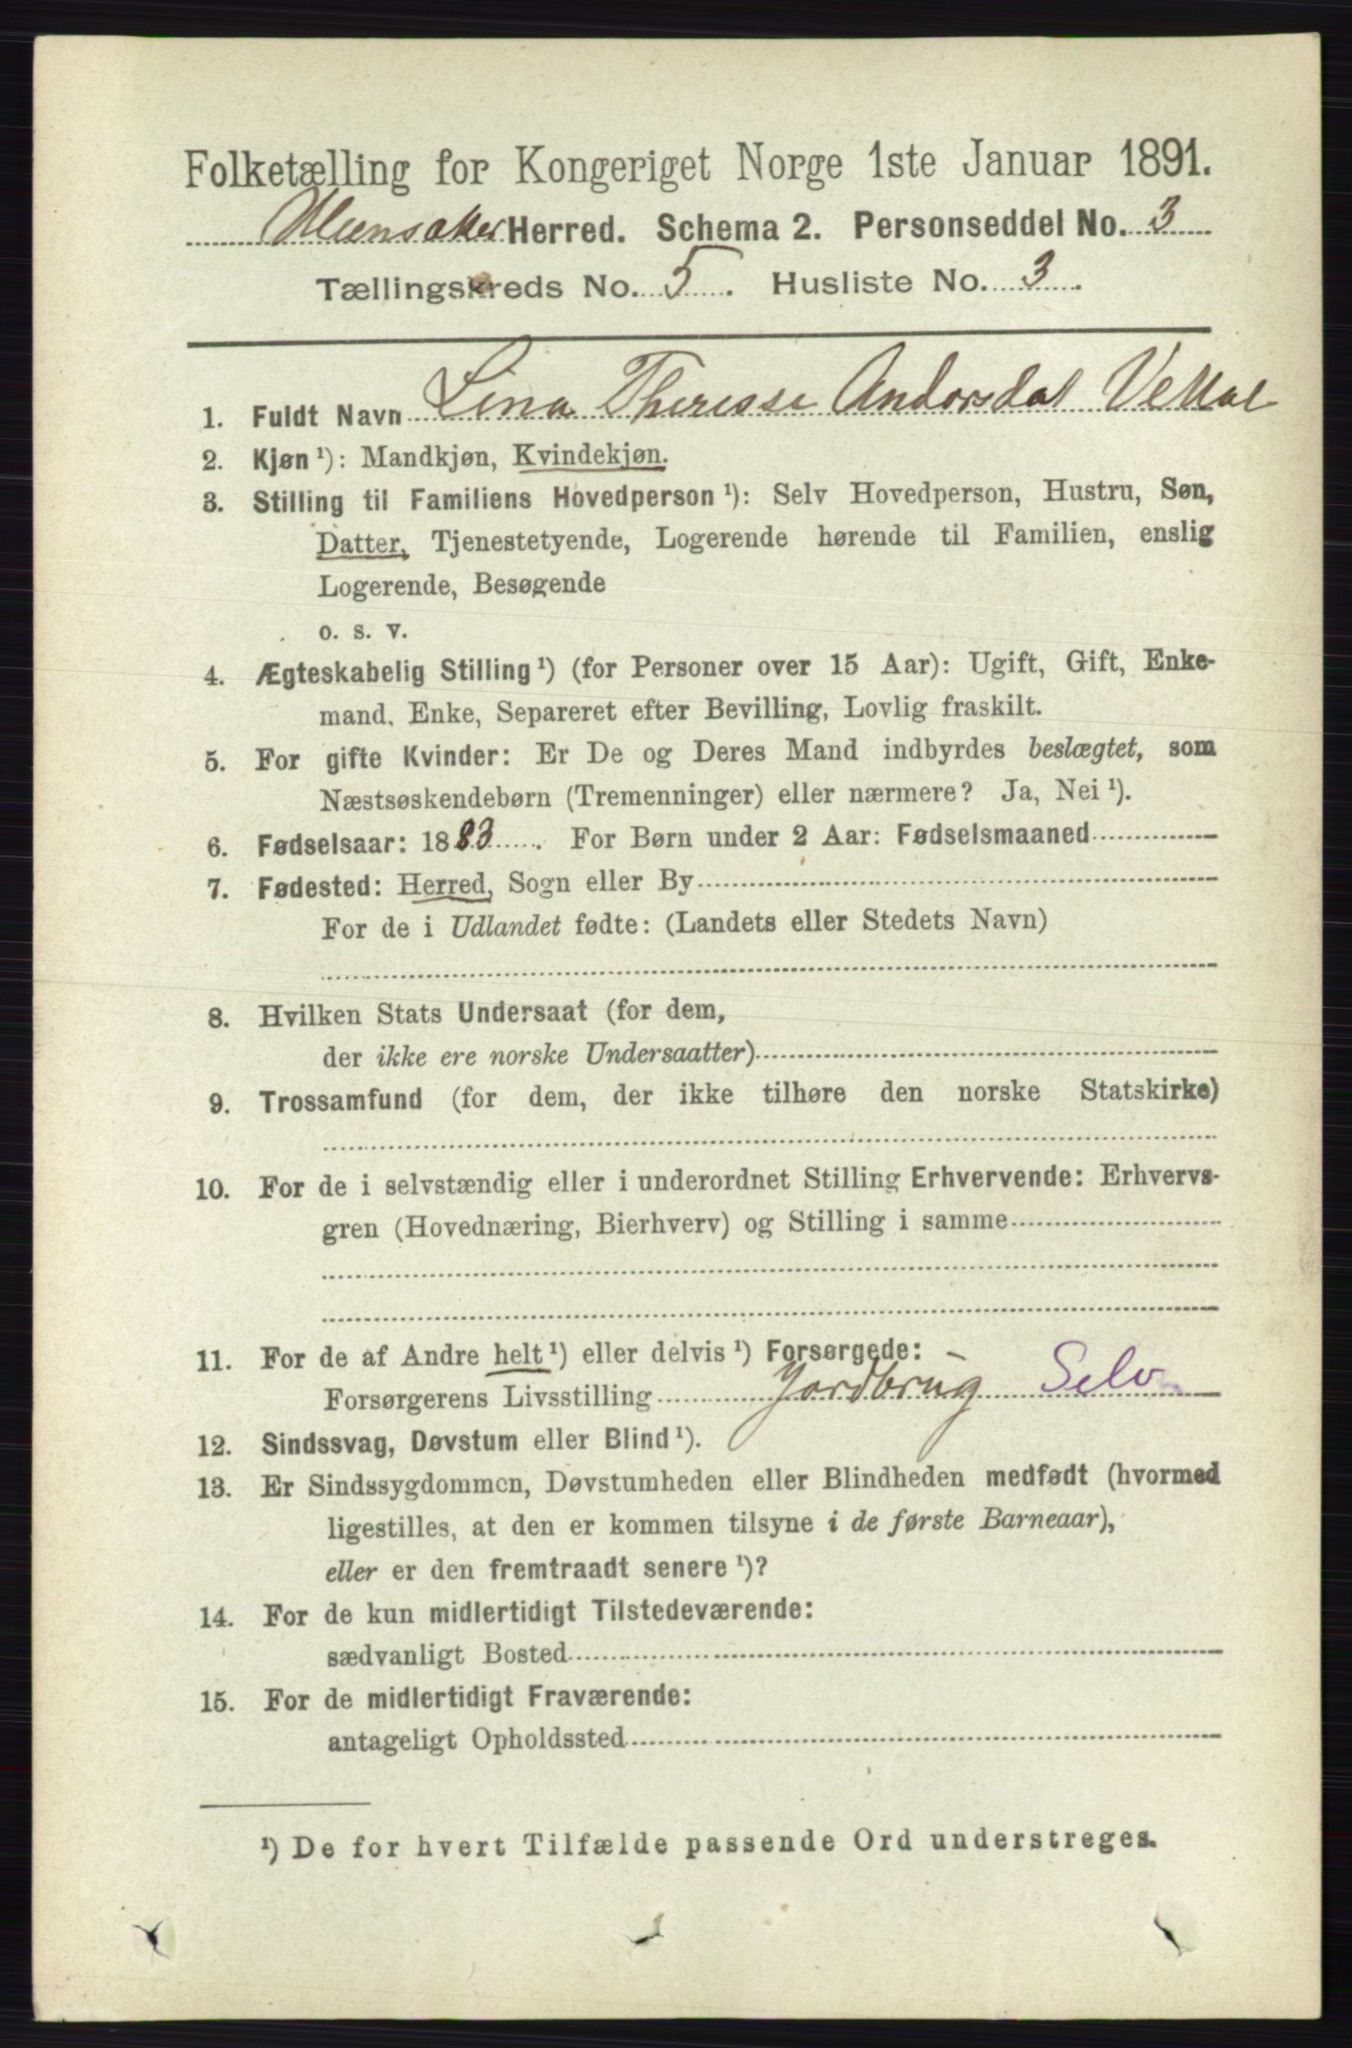 Folketælling for Kongeriget Norge 1ste Januar 1891.
Ullensaker Herred. Schema 2. Personseddel No. 3
Tællingskreds No. 5. Husliste No. 3.
1. Fuldt Navn Lina Theresse Andorsdat Vettal
2. Kjøn ¹): Mandkjøn, Kvindekjøn.
3. Stilling til Familiens Hovedperson ¹): Selv Hovedperson, Hustru, Søn,
Datter, Tjenestetyende, Logerende hørende til Familien, enslig
Logerende, Besøgende
o. s. v.
4. Ægteskabelig Stilling ¹) (for Personer over 15 Aar): Ugift, Gift, Enke-
mand, Enke, Separeret efter Bevilling, Lovlig fraskilt.
5. For gifte Kvinder: Er De og Deres Mand indbyrdes beslægtet, som
Næstsøskendebørn (Tremenninger) eller nærmere? Ja, Nei ¹).
6. Fødselsaar: 1883. For Børn under 2 Aar: Fødselsmaaned
7. Fødested: Herred, Sogn eller By
For de i Udlandet fødte: (Landets eller Stedets Navn)
8. Hvilken Stats Undersaat (for dem,
der ikke ere norske Undersaatter)
9. Trossamfund (for dem, der ikke tilhøre den norske Statskirke)
10. For de i selvstændig eller i underordnet Stilling Erhvervende: Erhvervs-
gren (Hovednæring, Bierhverv) og Stilling i samme
11. For de af Andre helt ¹) eller delvis ¹) Forsørgede:
Forsørgerens Livsstilling Jordbrug Selv
12. Sindssvag, Døvstum eller Blind ¹).
13. Er Sindssygdommen, Døvstumheden eller Blindheden medfødt (hvormed
ligestilles, at den er kommen tilsyne i de første Barneaar),
eller er den fremtraadt senere ¹)?
14. For de kun midlertidigt Tilstedeværende:
sædvanligt Bosted
15. For de midlertidigt Fraværende:
antageligt Opholdssted
¹) De for hvert Tilfælde passende Ord understreges.